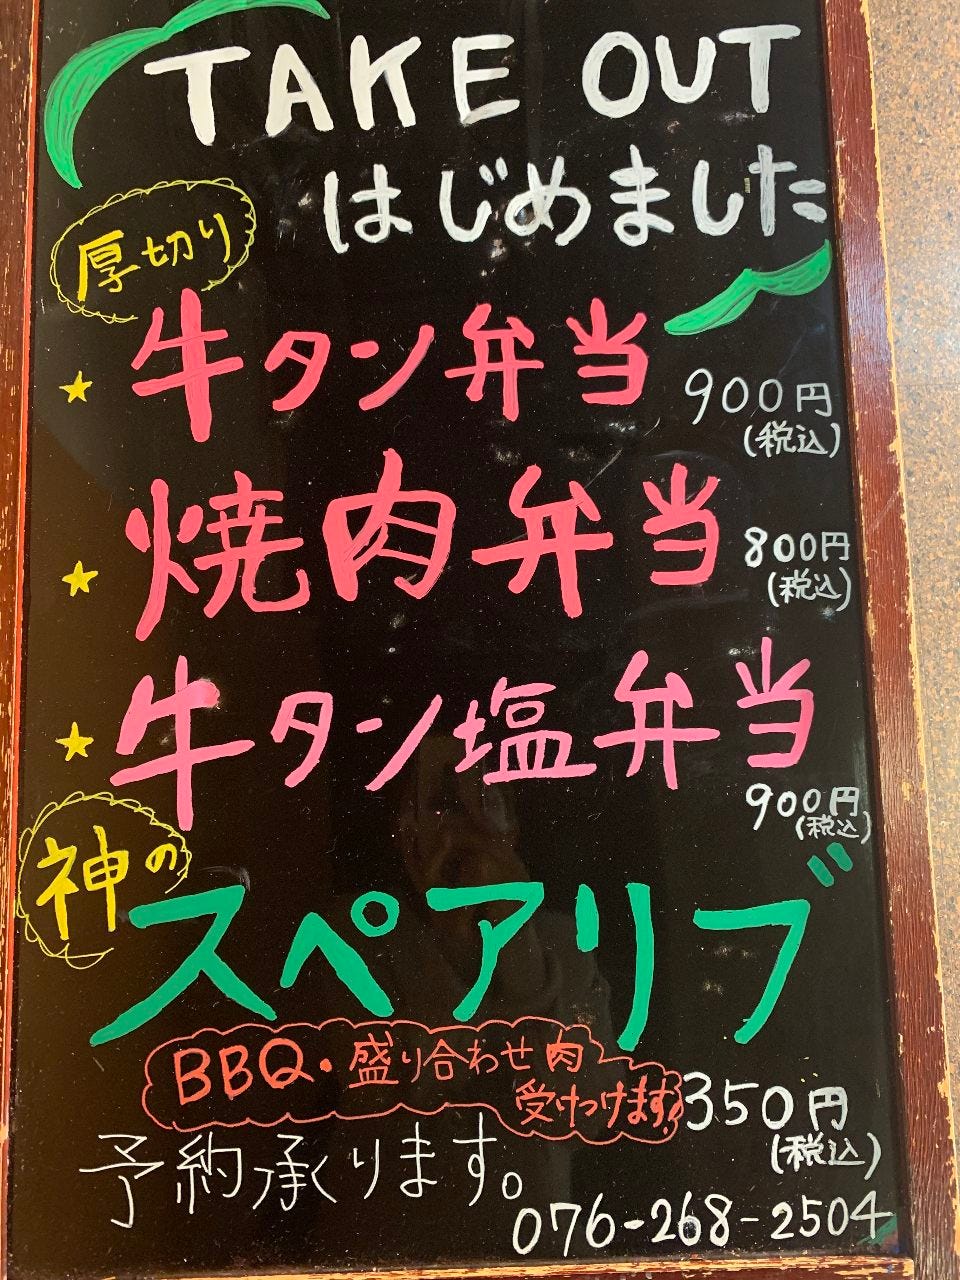 TAKE OUT
はじめました
厚切り
牛タン弁当
900円
(税込)
焼肉弁当
800円
(税込)
牛タン塩弁当
900円
(税込)
神の
スペアリブ
BBQ・盛り合わせ肉
受けつけます!
350円
(税込)
予約承ります。
076-268-2504